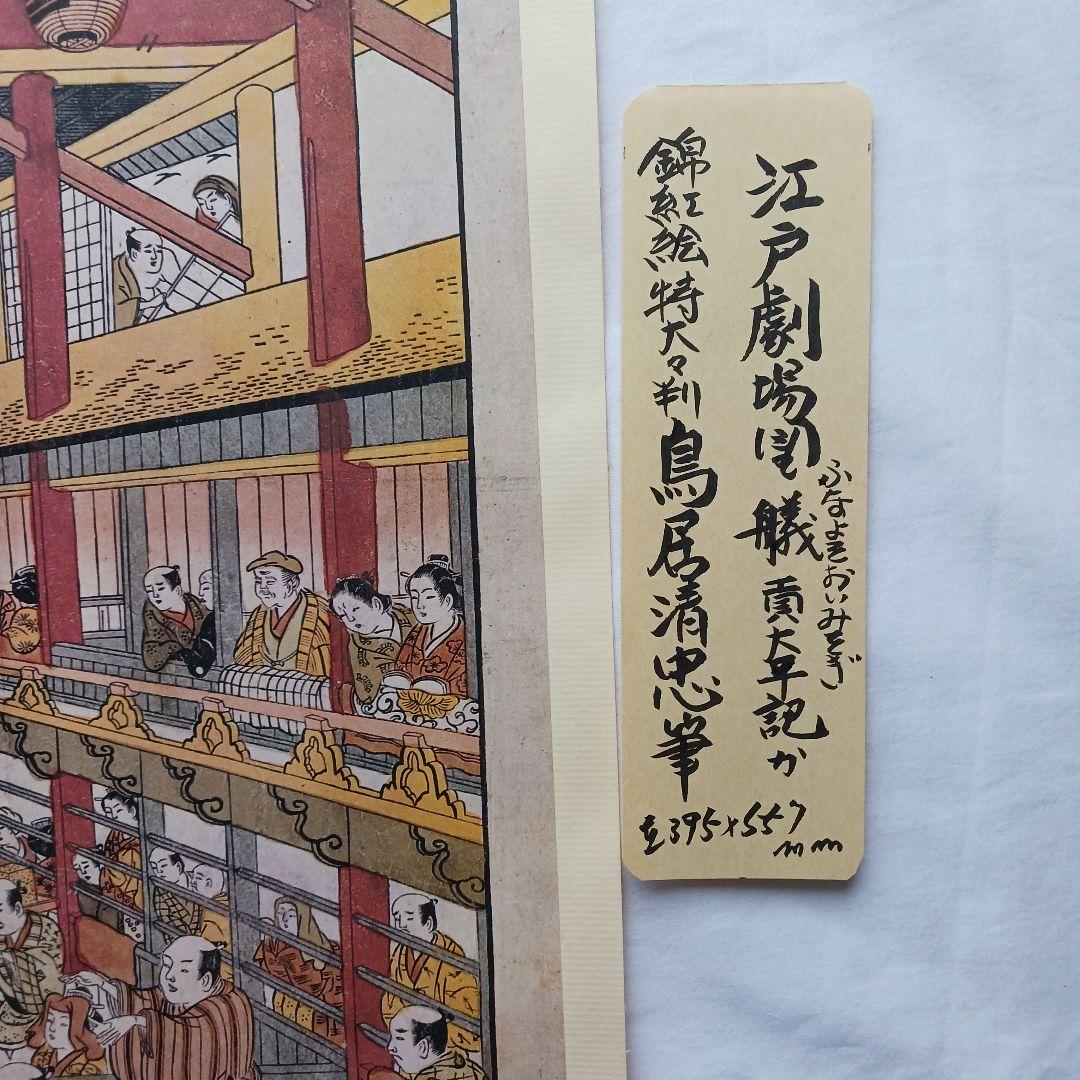 江戸劇場図 艤貢太平記か
ふなよそおいみつぎ
錦紅絵特大々判 鳥居清忠筆
395×557
mm